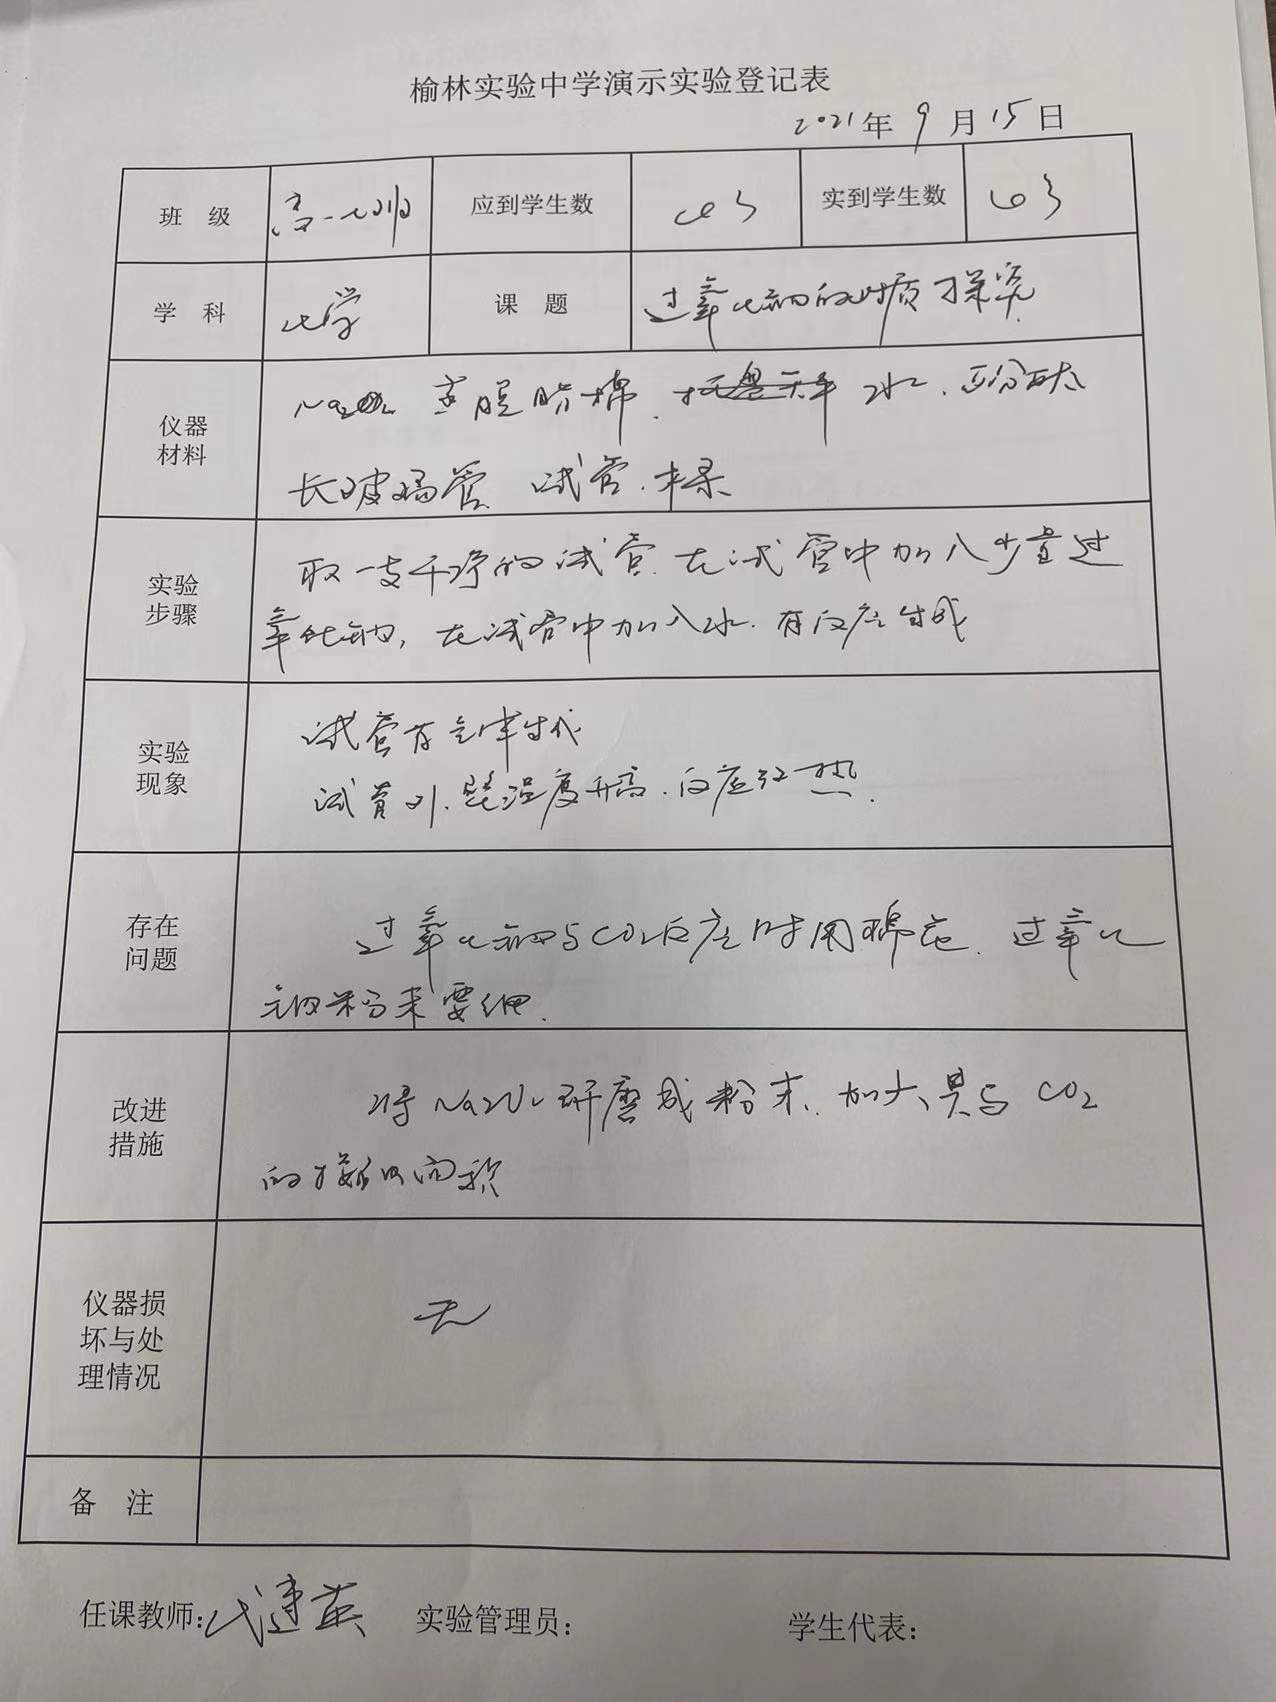 榆林实验中学演示实验登记表
2021年 9月 15日
班 级 高一 应到学生数 63 实到学生数 63
学 科 化学 课 题 过氧化钠的性质探究
仪器
材料
Na2O2 脱脂棉、托盘天平 水、酚酞
长玻璃管 试管、
实验
步骤
取一支干净的试管、在试管中加入少量过
氧化钠,在试管中加入水.有反应生成
实验
现象
试管有气体生成
试管外壁温度升高.反应放热.
存在
问题
过氧化钠与CO2反应时用棉花.过氧化
钠粉末要细.
改进
措施
将Na2O2研磨成粉末.加大其与CO2
的接触面积
仪器损
坏与处
理情况
无
备 注
任课教师: 实验管理员: 学生代表: